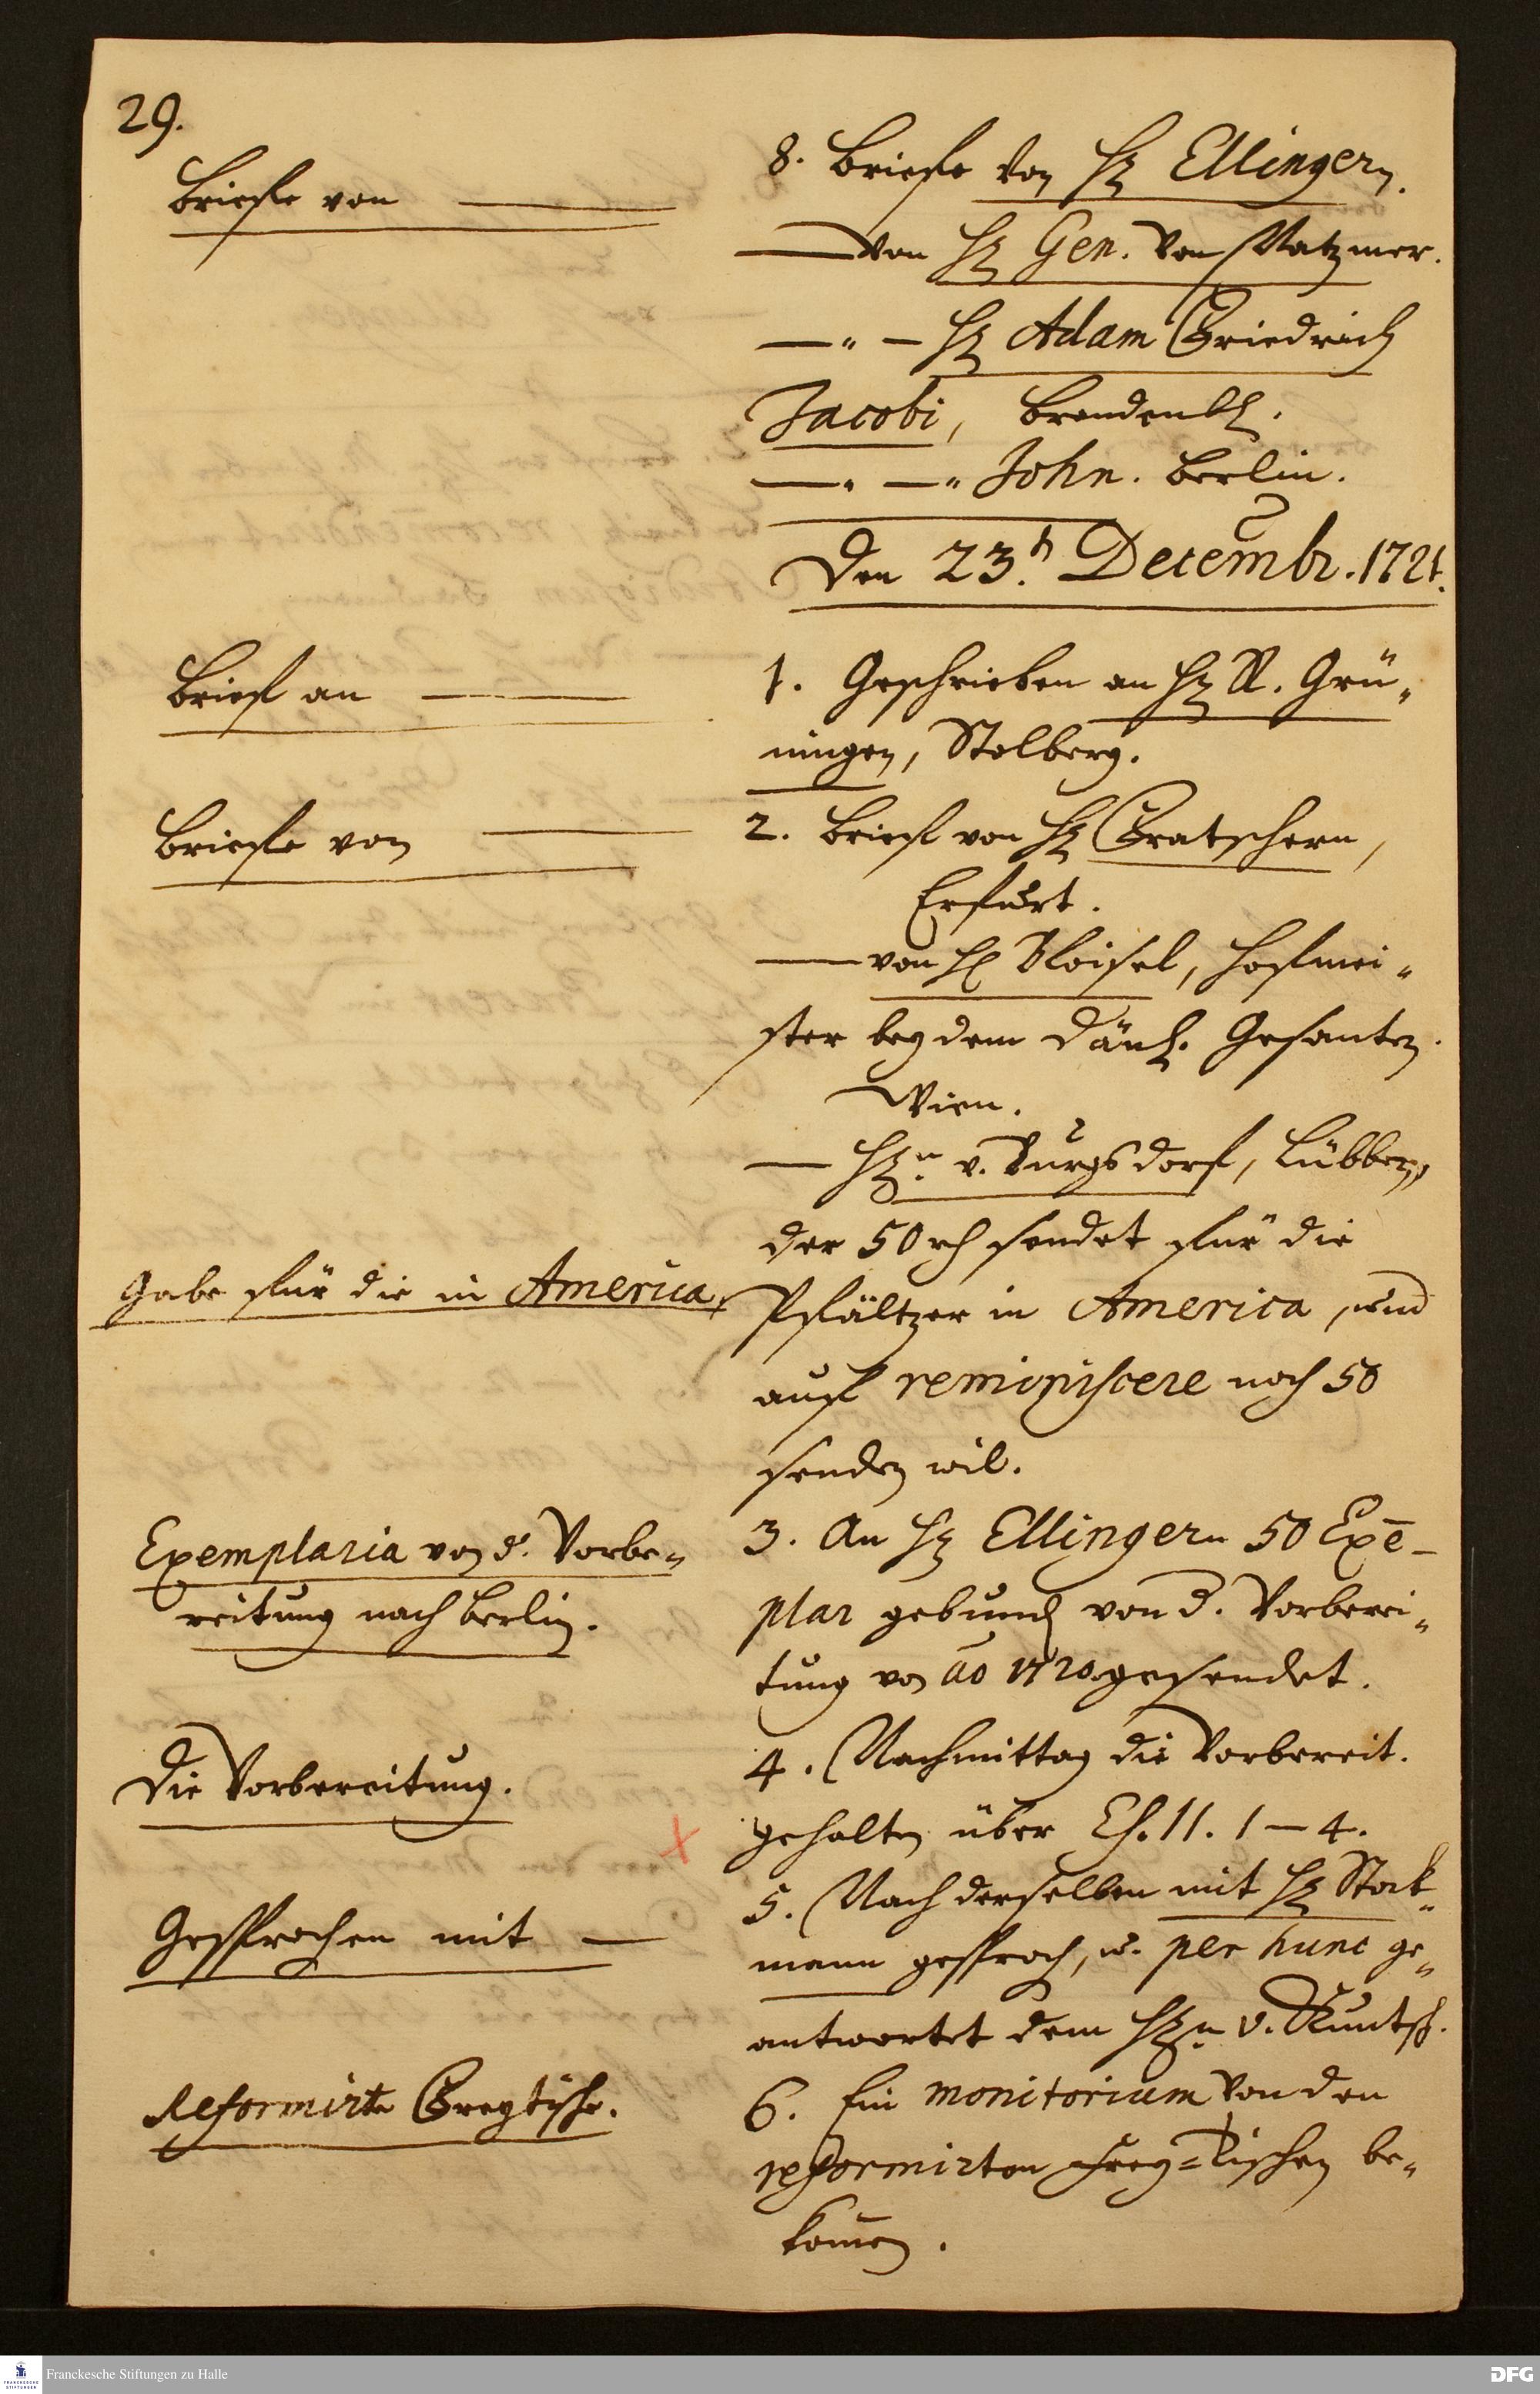 29.
Briefe von
8. Briefe von H. Ellingern.
von H. Gen. von Natzmer.
— " — H. Adam Friedrich
Jacobi, Brandenb.
— " — " John. Berlin.
Den 23.t Decembr. 1721.
Brief an
1. Geschrieben an H. R. Grü-
ningen, Stolberg.
Briefe von
2. Brief von H. Gratschern,
Erfurt.
— von H. Kloisel, Hofmei-
ster bey dem Dänsch. Gesanten.
Wien.
— Hn. v. Burgsdorf, Lübben,
der 50 rth sendet für die
Gabe für die in America
Pfältzer in America, und
auf reminiscere noch 50
senden wil.
Exemplaria von d. Vorbe-
reitung nach Berlin.
3. An H. Ellingern 50 Exē-
plar gebund von d. Vorberei-
tung von ao 1720. gesendet.
Die Vorbereitung.
4. Nachmittag die Vorbereit.
gehalten über Es. 11. 1–4.
Gesprochen mit
5. Nach derselben mit H. Stock-
mann gesproch, u. per hunc ge-
antwortet dem Hn. v. Kuntsch.
Reformirte Freytische.
6. Ein monitorium von den
reformirten Frey-Tischen be-
komen.
Franckesche Stiftungen zu Halle
DFG